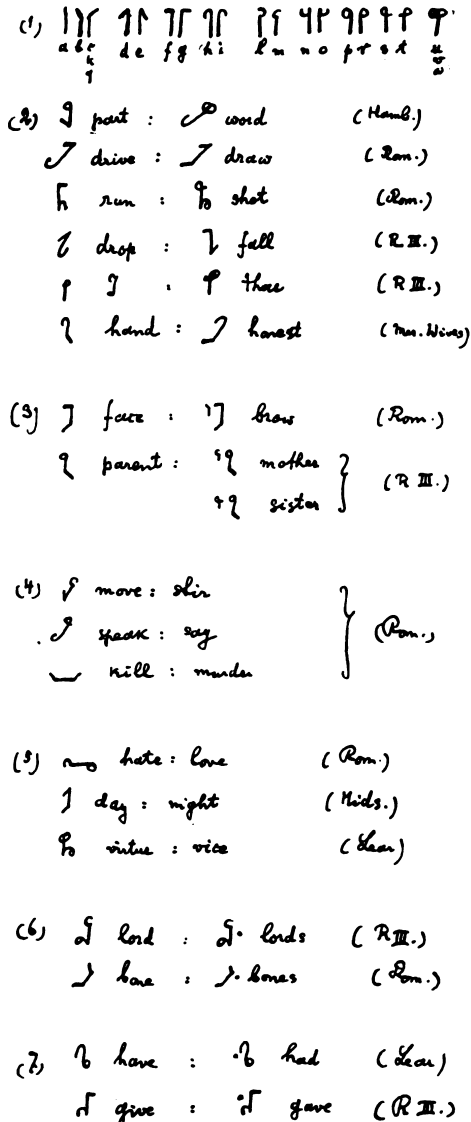 (1)
a b c d e f g h i l m n o p r s t u
k v
q w
(2) part : word (Hamb.)
drive : draw (Rom.)
run : shot (Rom.)
drop : fall (R III.)
I : thou (R III.)
hand : honest (Mer. Wives)
(3) face : brow (Rom.)
parent : mother
sister (R III.)
(4) move : stir
speak : say (Rom.)
kill : murder
(5) hate : love (Rom.)
day : night (Mids.)
virtue : vice (Lear)
(6) lord : lords (R III.)
bone : bones (Rom.)
(7) have : had (Lear)
give : gave (R III.)